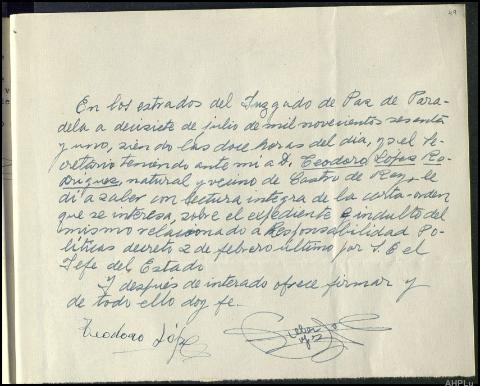 49
En los estrados del Juzgado de Paz de Para-
dela a decisiete de julio de mil novecientos sesenta
y uno, siendo las doce horas del dia, yo el Se-
cretario teniendo ante mi a D. Teodoro Lopez Ro-
driguez, natural y vecino de Castro de Rey, le
di a saber con lectura integra de la carta-orden
que se interesa, sobre el expediente e indulto del
mismo relacionado a Responsabilidad Po-
líticas decreto 2 de febrero último por S. E el
Jefe del Estado
Y después de interado ofrece firmar y
de todo ello doy fe.
Teodoro López
AHPLu